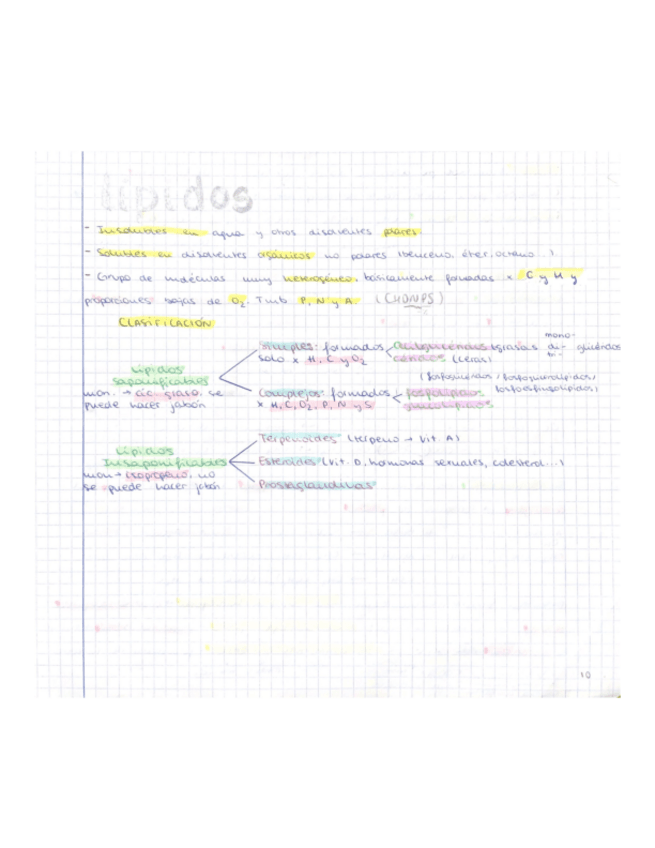 Lípidos
- Insolubles en agua y otros disolventes polares
- Solubles en disolventes orgánicos no polares (benceno, éter, octano)
- Grupo de moléculas muy heterogéneo, básicamente formadas x C y H y
proporciones bajas de O2. Tmb P, N y A. (CHONPS)
CLASIFICACIÓN
Lípidos
saponificables
mon. → ác. graso. se
puede hacer jabón
Simples: formados
solo x H, C y O2
(grasas
mono-
di-
tri-
glicéridos
céridos (ceras)
Complejos: formados
x H, C, O2, P, N y S
fosfolípidos
(fosfoglicéridos / fosfogliceralípidos /
fosfoesfingolípidos)
glucolípidos
Lípidos
Insaponificables
mon → isopreno. no
se puede hacer jabón
Terpenoides (terpeno → vit A)
Esteroides (vit. D, hormonas sexuales, colesterol...)
Prostaglandinas
10